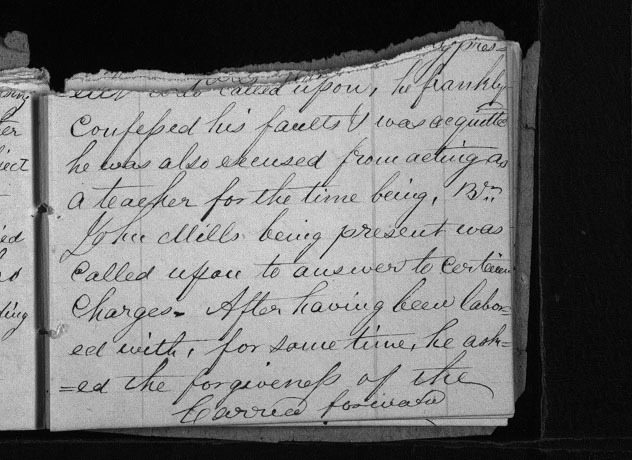 pres-
ent was called upon, he frankly
Confessed his faults & was acquitted
he was also excused from acting as
a teacher for the time being, Brn
John Mills being present was
called upon to answer to certain
Charges. After having been labor-
ed with, for some time, he ask-
=ed the forgiveness of the
Carried forward